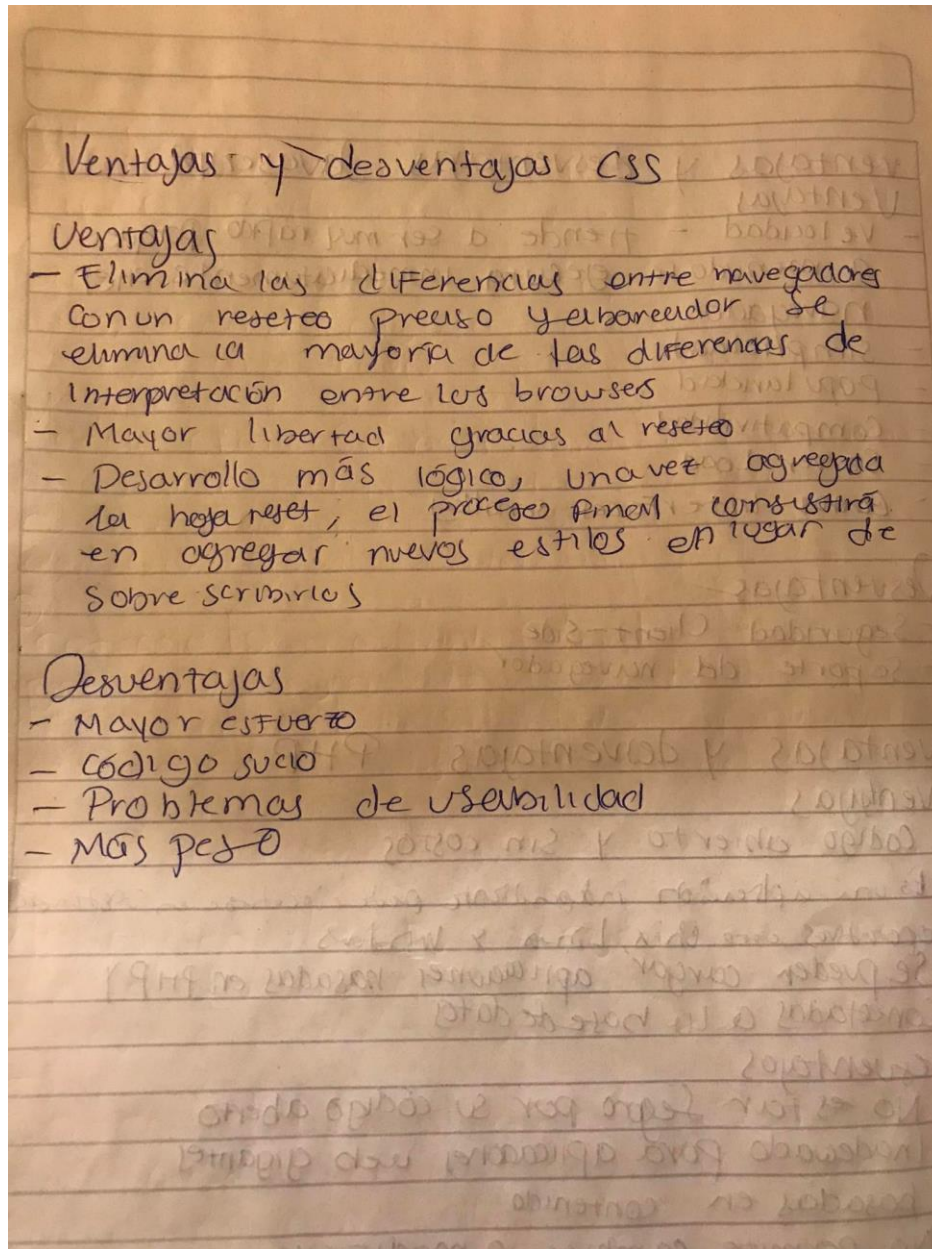 Ventajas y desventajas CSS
Ventajas
- Elimina las diferencias entre navegadores
Con un reseteo preciso y abarcador se
elimina la mayoría de las diferencias de
Interpretación entre los browses
- Mayor libertad gracias al reseteo
- Desarrollo más lógico, una vez agregada
la hoja reset, el proceso consistirá
en agregar nuevos estilos en lugar de
Sobre scribirlos
Desventajas
- Mayor esfuerzo
- Código sucio
- Problemas de usabilidad
- Más peso